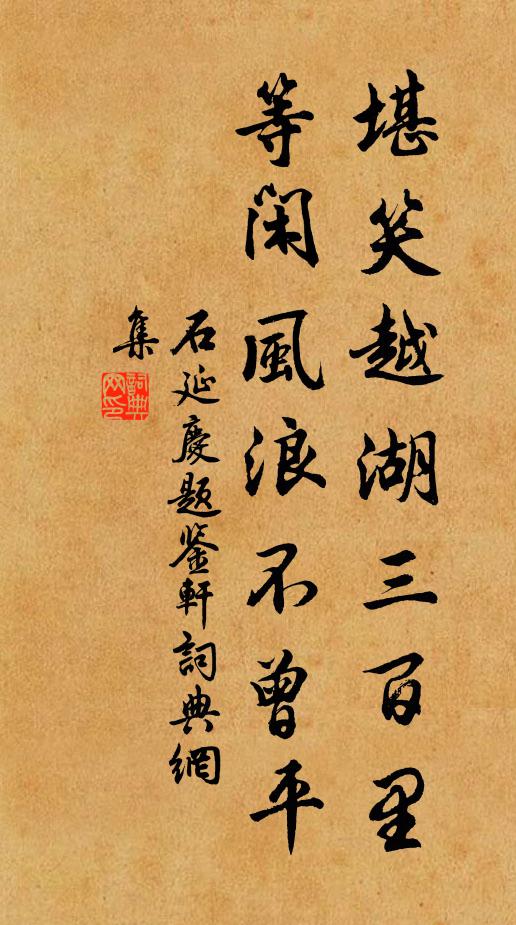 堪笑越湖三百里
等閑風浪不曾平
石延慶题鉴軒詞典網
集
詞典网印